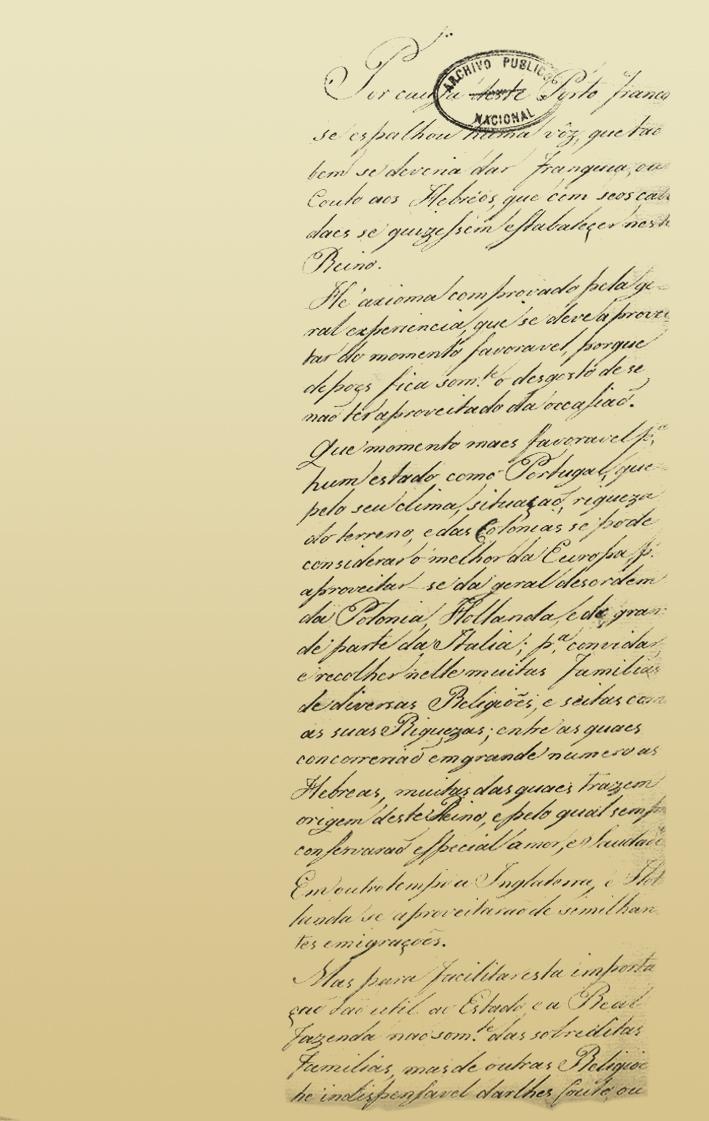 Por cauza deste Porto franco
ARCHIVO PUBLICO
NACIONAL
se espalhou huma vôz, que tao
bem se deveria dar franquia, ou
Couto aos Hebréos, que com seos cab
daes se quizessem estabaleçer neste
Reino.
He' axioma comprovado pela ge-
ral experiencia, que se deve aprovei
tar do momento favoravel, porque
depoes fica som.te o desgosto de se
naõ ter aproveitado da occasiaõ.
Que momento maes favoravel p.a
hum estado como Portugal, que
pelo seu clima, situaçaõ, riqueza
do terreno, e das Colonias se pode
considerar o melhor da Europa, p.a
aproveitar-se da geral desordem
da Polonia, Hollanda, e da gran
de parte da Italia; p.a convidar,
e recolher nelle muitas Familias
de diversas Religiões, e seitas com
as suas Riquezas; entre as quaes
concorreriaõ em grande numero as
Hebreas, muitas das quaes trazem
origem deste Reino, e pelo qual sempre
conservaraõ especial amor, e Saudade
Em outro tempo a Inglaterra, e Hol
landa se aproveitaraõ de semilhan
tes emigrações.
Mas para facilitar esta importa
çaõ taõ util ao Estado e a Real
Fazenda naõ som.te das sobreditas
Familias, mas de outras Religioẽ
he indispensavel darlhes Couto, ou